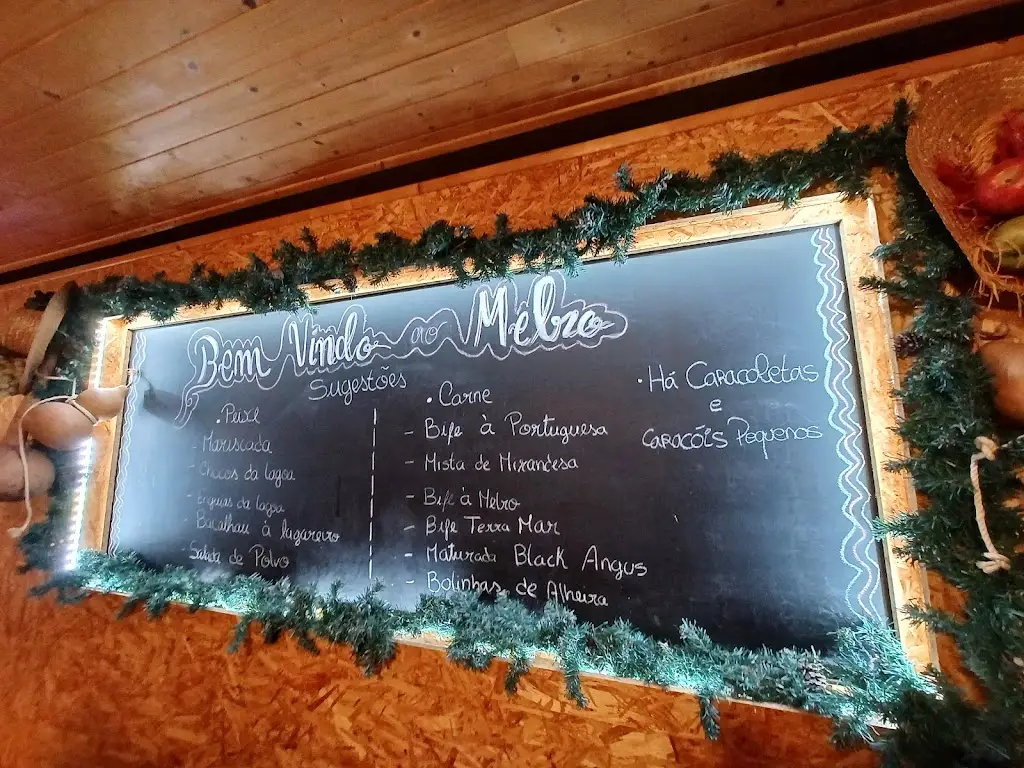 Bem Vindo ao Melro
Sugestões
• Peixe
- Mariscada
- Chocos da lagoa
- Enguias da lagoa
- Bacalhau à lagareiro
- Salada de Polvo
• Carne
- Bife à Portuguesa
- Mista de Mirandesa
- Bife à Melro
- Bife Terra Mar
- Maturada Black Angus
- Bolinhas de Alheira
• Há Caracoletas
e
Caracóis Pequenos